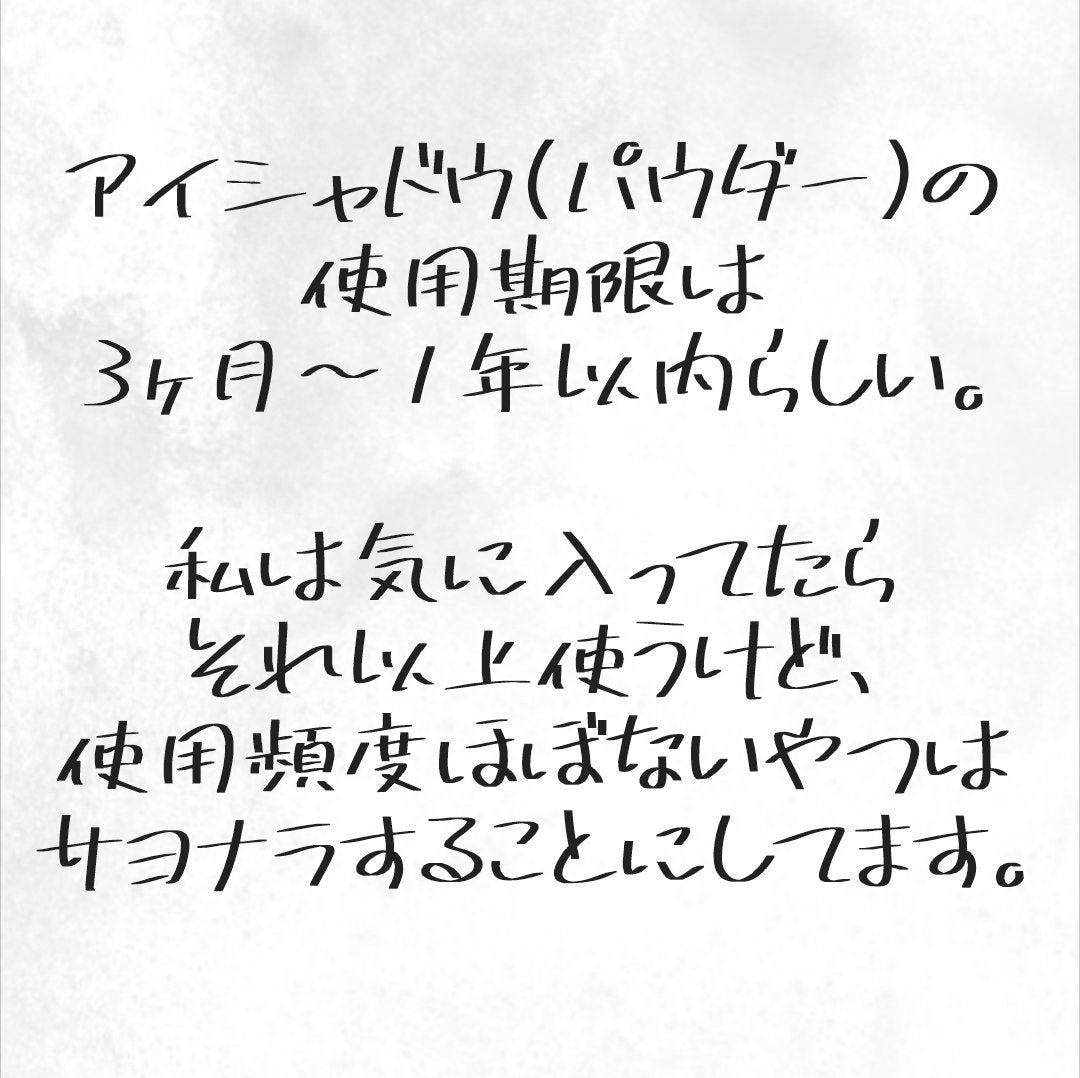 アイシャドウ(パウダー)の
使用期限は
3ヶ月～1年以内らしい。
私は気に入ってたら
それ以上使うけど、
使用頻度ほぼないやつは
サヨナラすることにしてます。